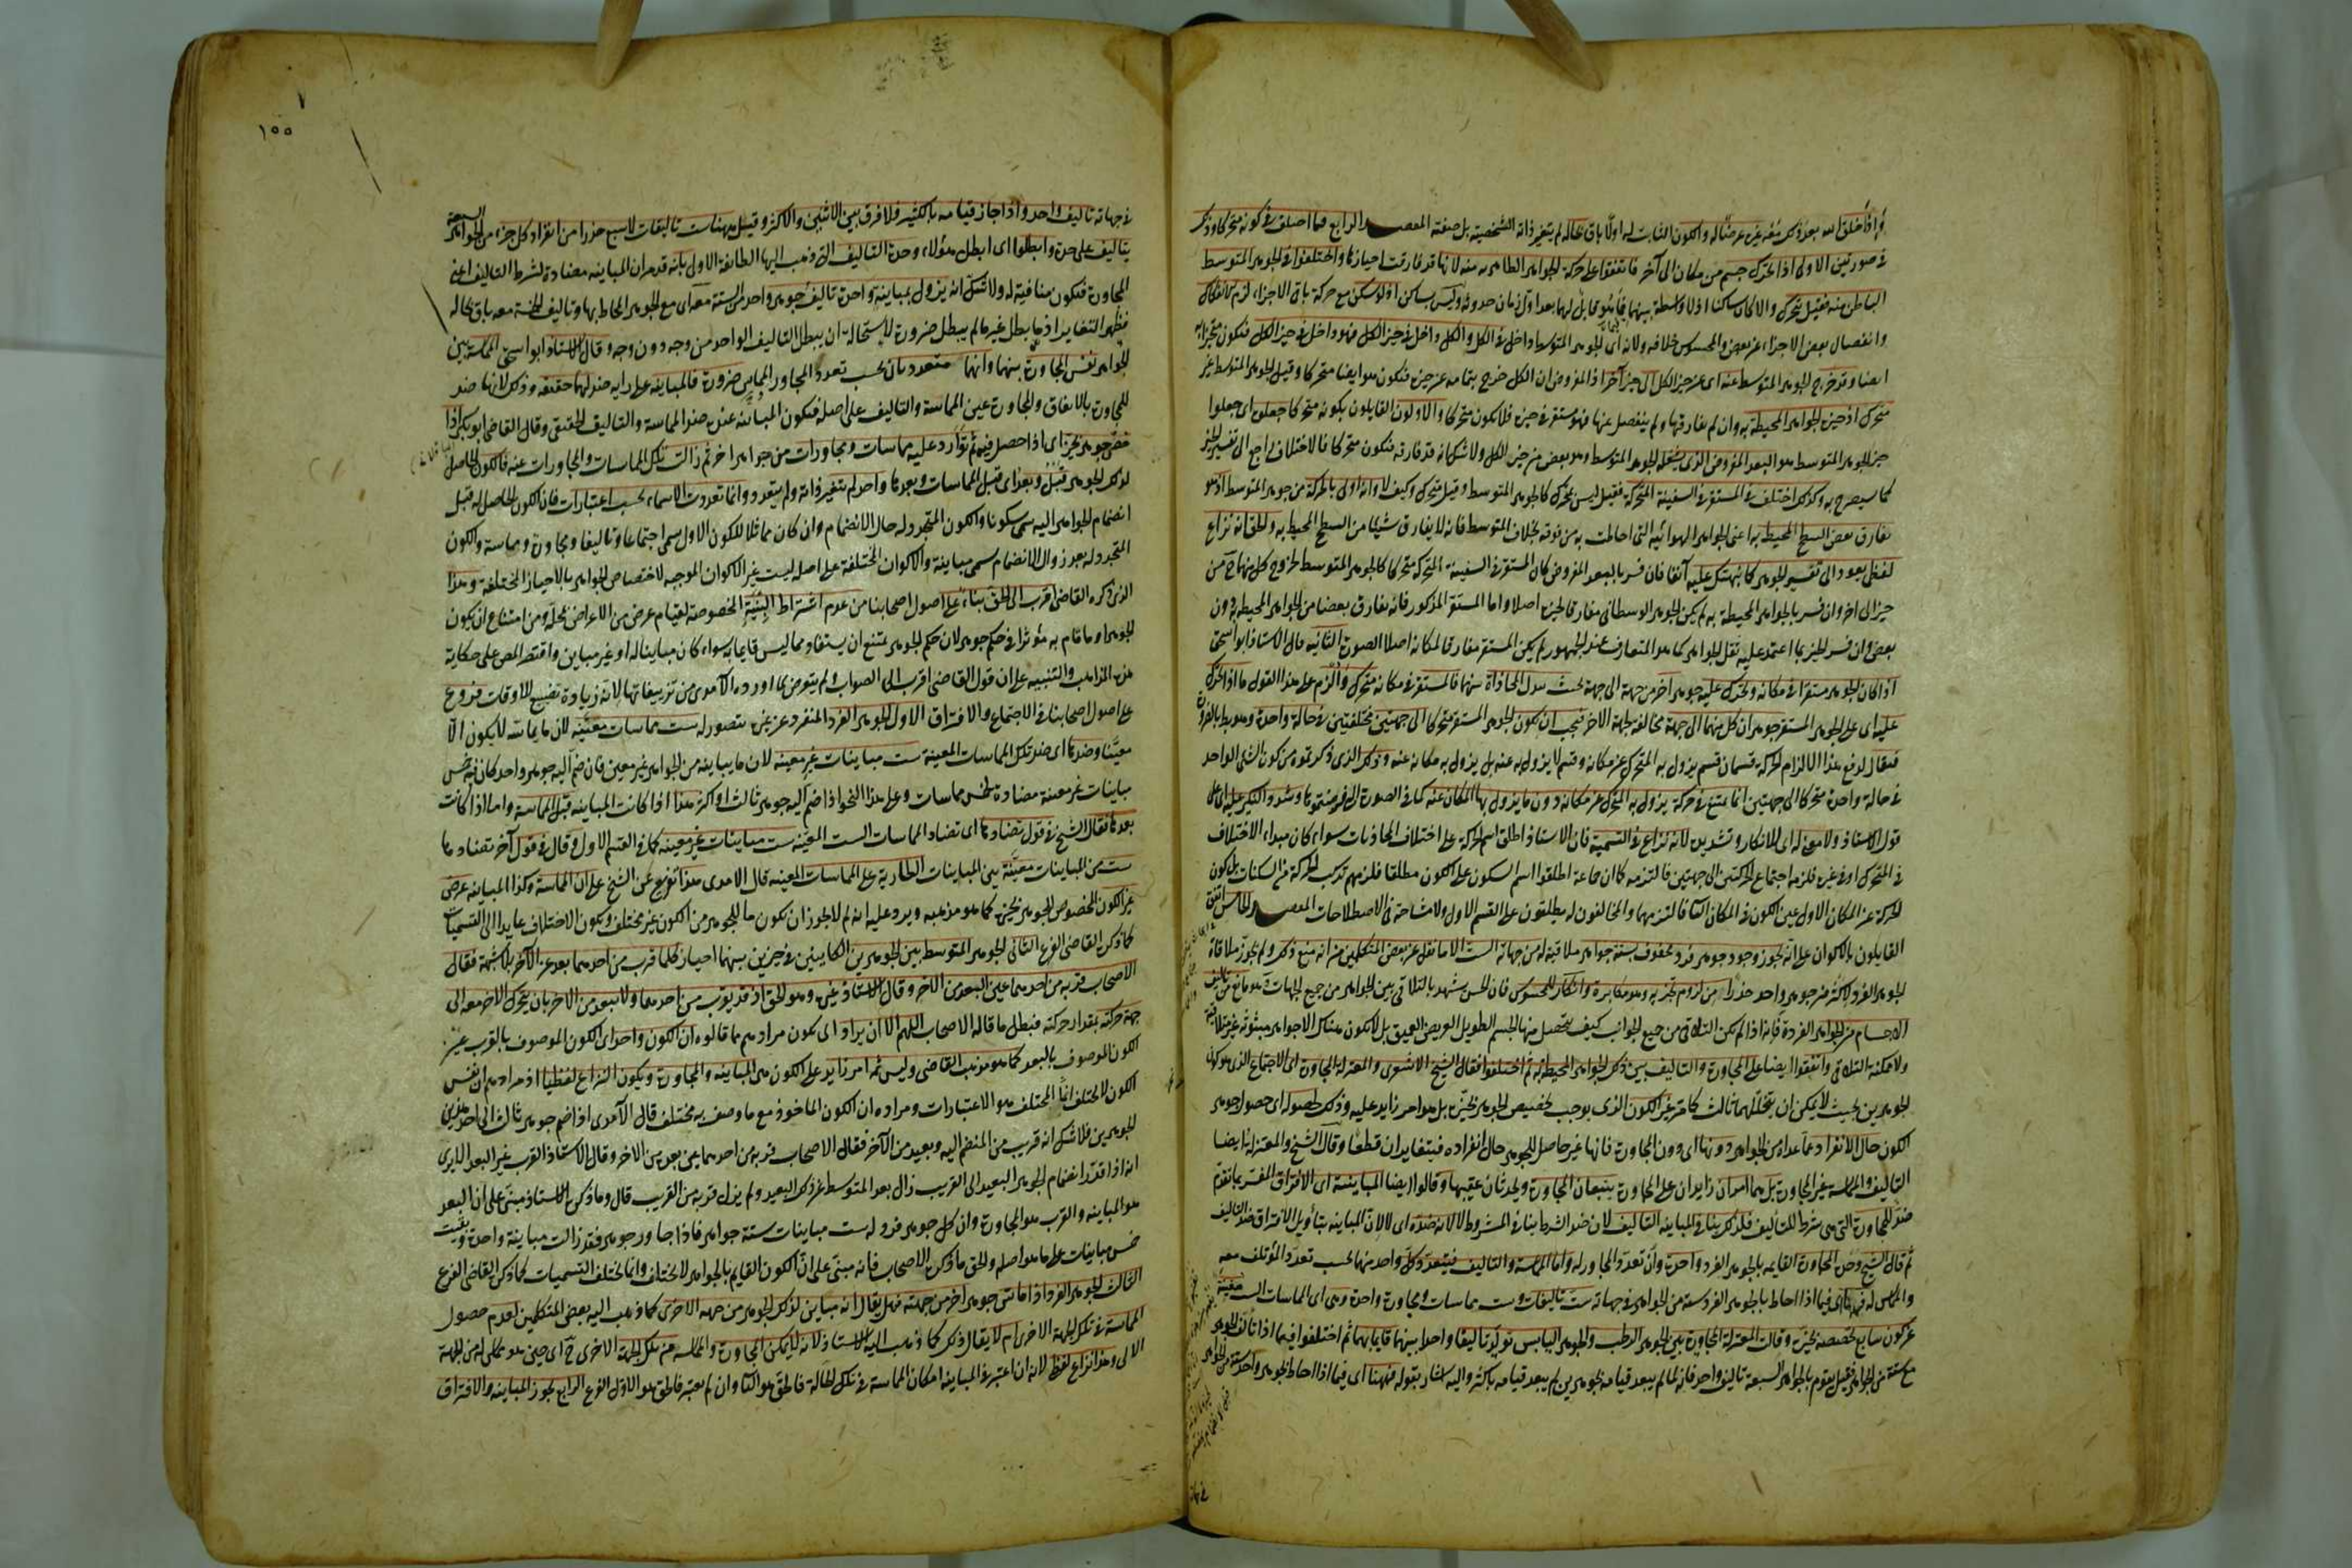 واذا خلق الله بعد ذلك معه غيره عرضا له والكون الثابت له اولا باق بحاله لم يتغير ذاته الشخصية بل صفته المقصد الرابع فيما اختلف في كونه متحركا وذلك
في صورتين الاولى اذا تحرك جسم من مكان الى آخر فاتفقوا على حركة الجواهر الظاهرة منه لانها قد فارقت احيازها واختلفوا في الجوهر المتوسط
الباطن منه فقيل متحرك والا كان ساكنا اذ لا واسطة بينهما فيما هو قابل لهما بعد اول زمان حدوثه وليس بساكن اذ لو سكن مع حركة باقي الاجزاء لزم الانفكاك
وانفصال بعض الاجزاء عن بعض والمحسوس خلافه ولانه اى الجوهر المتوسط داخل في الكل والكل داخل في حيز الكل فهو داخل في حيز الكل فيكون متحيزا به
ايضا وقد خرج الجوهر المتوسط عنه اى عن حيز الكل الى حيز آخر اذ المفروض ان الكل خرج بتمامه عن حيزه فيكون هو ايضا متحركا وقيل الجوهر المتوسط غير
متحرك اذ حيزه الجواهر المحيطة به وانه لم يفارقها ولم ينفصل عنها فهو مستقر في حيزه فلا يكون متحركا والاولون القايلون بكونه متحركا جعلوه اى جعلوا
حيز الجوهر المتوسط هو البعد المفروض الذى يشغله الجوهر المتوسط وهو بعض من حيز الكل ولا شك انه قد فارقه فيكون متحركا فالاختلاف راجع الى تفسير الحيز
كما سيصرح به وكذلك اختلف في المستقر في السفينة المتحركة فقيل ليس بمتحرك كالجوهر المتوسط وقيل متحرك وكيف لا وانه اولى بالحركة من جوهر المتوسط اذ هو
يفارق بعض السطح المحيط به اعنى الجواهر الهوائية التى احاطت به من فوقه بخلاف المتوسط فانه لا يفارق شيئا من السطح المحيط به والحق انه نزاع
لفظى يعود الى تفسير الحيز كما نبهتك عليه آنفا فان فسر بالبعد المفروض كان المستقر في السفينة المتحركة متحركا كالجوهر المتوسط لخروج كل منهما ح من
حيز الى آخر وان فسر بالجواهر المحيطة به لم يكن الجوهر الوسطانى مفارقا لحيزه اصلا واما المستقر المذكور فانه يفارق بعضا من الجواهر المحيطة به دون
بعض وان فسر الحيز بما اعتمد عليه ثقل الجواهر كما هو المتعارف عند الجمهور لم يكن المستقر مفارقا لمكانه اصلا الصورة الثانية قال الاستاذ ابو اسحق
اذا كان الجوهر مستقرا في مكانه وتحرك عليه جوهر آخر من جهة الى جهة بحيث تبدل المحاذاة بينهما فالمستقر في مكانه متحرك والزم على هذا القول ما اذا تحرك
عليه اى على الجوهر المستقر جوهران كل منهما الى جهة مخالفة لجهة الآخر فيجب ان يكون الجوهر المستقر متحركا الى جهتين مختلفتين في حالة واحدة وهو بط بالضرورة
فيقال لدفع هذا الالزام الحركة قسمان قسم يزول به المتحرك عن مكانه وقسم لا يزول به عنه بل يزول به مكانه عنه وذلك الذى ذكرتموه من كون الشئ الواحد
في حالة واحدة متحركا الى جهتين انما يمتنع في حركة يزول بها المتحرك عن مكانه دون ما يزول بها المكان عنه كما في الصورة التى فرضتموها وشدد النكير عليه اى على
قول الاستاذ ولا معنى له اى للانكار وتشديده لانه نزاع في التسمية فان الاستاذ اطلق اسم الحركة على اختلاف المحاذيات سواء كان مبداء الاختلاف
في المتحرك او في غيره فلزمه اجتماع الحركتين الى جهتين فالتزمه كما ان جماعة اطلقوا اسم السكون على الكون مطلقا فلزمهم تركب الحركة من السكنات بل كون
الحركة عن المكان الاول عين الكون في المكان الثانى فالتزموها والمخالفون له يطلقون على القسم الاول ولا مشاحة في الاصطلاحات المقصد الخامس اتفق
القايلون بالاكوان على انه يجوز وجود جوهر فرد محفوف بستة جواهر ملاقية له من جهاته الست الا ما نقل عن بعض المتكلمين من انه منع ذلك ولم يجوز ملاقاة
الجوهر الفرد لاكثر من جوهر واحد حذرا من لزوم تجزيه وهو مكابرة وانكار للمحسوس فان الحس شهد بالتلاقى بين الجواهر من جميع الجهات وهو مانع من تأليف
الاجسام من الجواهر الفردة فانه اذا لم يكن التلاقى من جميع الجوانب كيف يتحصل منها الجسم الطويل العريض العميق بل لا يكون هناك الا جواهر مبثوثة غير متلاقية
ولا يمكنه التلاقى واتفقوا ايضا على المجاورة والتأليف بين ذلك الجوهر والجواهر المحيطة به ثم اختلفوا فقال الشيخ الاشعرى والمعتزلة المجاورة اى الاجتماع الذى هو كون
الجوهرين بحيث لا يمكن ان يتخللهما ثالث كما مر غير الكون الذى يوجب تخصيص الجوهر بحيزه بل هو امر زايد عليه وذلك لحصوله اى حصول جوهر
الكون حال الانفراد عما عداه من الجواهر دونها اى دون المجاورة فانها غير حاصلة للجوهر حال انفراده فيتغايران قطعا وقال الشيخ والمعتزلة ايضا
التأليف والمماسة غير المجاورة بل هما امران زايدان على المجاورة يتبعان المجاورة ويحدثان عقيبها وقالوا ايضا المباينة اى الافتراق المفسر بما تقدم
ضد للمجاورة التى هى شرط للتأليف فلذلك ينافى المباينة التأليف لان ضد الشرط ينافى المشروط لا لانه ضده اى لا لان المباينة بتأويل الافتراق ضد التأليف
ثم قال الشيخ وحده المجاورة القايمة بالجوهر الفرد واحدة وان تعدد المجاور له واما المماسة والتأليف فيتعدد كل واحد منهما بحسب تعدد المؤتلف معه
والمماس له فههنا اى فيما اذا احاط بالجوهر الفرد ستة من الجواهر في جهاته ست تأليفات وست مماسات ومجاورة واحدة وهى اى المماسات الست مغنية
عن كون سابع تخصصه بحيزه وقالت المعتزلة المجاورة بين الجوهر الرطب والجوهر اليابس تولد تأليفا واحدا بينهما قايما بهما ثم اختلفوا فيما اذا تألف الجوهر
مع ستة من الجواهر فقيل يقوم بالجواهر السبعة تأليف واحد فانه لما لم يبعد قيامه بجوهرين لم يبعد قيامه باكثر واليه اشار بقوله فههنا اى فيما اذا احاط بجوهر واحد ستة من الجواهر
في جها
١٥٥
في جهاته تأليف واحد واذا جاز قيامه بالكثير فلا فرق بين الاثنين والاكثر وقيل ههنا ست تأليفات لا سبع حذرا من انفراد كل جزء من الجواهر السبعة
بتأليف على حدة وابطلوا اى ابطل هؤلاء وحدة التأليف التى ذهب اليها الطائفة الاولى بانه قد مر ان المباينة مضادة لشرط التأليف اعنى
المجاورة فتكون منافية له ولا شك انه يزول بمباينة واحدة تأليف جوهر واحد من الستة معه اى مع الجوهر المحاط بها وتأليف الخمسة معه باق بحاله
فظهر التغاير اذ ما بطل غير ما لم يبطل ضرورة لاستحالة ان يبطل التأليف الواحد من وجه دون وجه وقال الاستاذ ابو اسحق المماسة بين
الجواهر نفس المجاورة بينهما وانهما متعددتان بحسب تعدد المجاور المماس ضرورة فالمباينة على رايه ضد لهما حقيقة وذلك لانها ضد
للمجاورة بالاتفاق والمجاورة عين المماسة والتأليف على اصله فيكون المباينة عنده ضد المماسة والتأليف الحقيقى وقال القاضى ابو بكر اذا
خص جوهر بحيز اى اذا حصل فيه ثم توارد عليه مماسات ومجاورات من جواهر اخر ثم زالت تلك المماسات والمجاورات عنه فالكون الحاصل
لذلك الجوهر قبل وبعد اى قبل المماسات وبعدها واحد لم يتغير ذاته ولم يتعدد وانما تعددت الاسماء بحسب اعتبارات فان الكون الحاصل له قبل
انضمام الجواهر اليه سمى سكونا والكون المتجدد له حال الانضمام وان كان مماثلا للكون الاول سمى اجتماعا وتأليفا ومجاورة ومماسة والكون
المتجدد له بعد زوال الانضمام سمى مباينة والاكوان المختلفة على اصله ليست غير الاكوان الموجبة لاختصاص الجواهر بالاحياز المختلفة وهذا
الذى ذكره القاضى اقرب الى الحق بناء على اصول اصحابنا من عدم اشتراط البنية المخصوصة لقيام عرض من الاعراض بمحله ومن امتناع ان يكون
الجوهر او ما قام به مؤثرا في حكم جوهر لان حكم الجوهر يمتنع ان يستفاد مما ليس قايما به سواء كان مباينا له او غير مباين واقتصر المص على حكاية
هذه المذاهب والتنبيه على ان قول القاضى اقرب الى الصواب ولم يتعرض لما اورده الآمدى من تزييفاتها لانه زيادة تضييع للاوقات فروع
على اصول اصحابنا في الاجتماع والافتراق الاول الجوهر الفرد المنفرد عن غيره يتصور له ست مماسات معينة لان ما يماسه لا يكون الا
معينا وضدها اى ضد تلك المماسات المعينة ست مباينات غير معينة لان ما يباينه من الجواهر غير معين فان ضم اليه جوهر واحد كان فيه خمس
مباينات غير معينة مضادة لخمس مماسات وعلى هذا النحو اذا ضم اليه جوهر ثالث او اكثر هذا اذا كانت المباينة قبل المماسة واما اذا كانت
بعدها فقال الشيخ في قول تضادها اى تضاد المماسات الست المعينة ست مباينات غير معينة كما في القسم الاول وقال في قول آخر تضادها
ست من المباينات معينة هى المباينات الطارية على المماسات المعينة قال الآمدى هذا تفريع من الشيخ على ان المماسة وكذا المباينة عرض
غير الكون المخصص للجوهر بحيزه كما هو مذهبه ويرد عليه انه لم لا يجوز ان يكون ما للجوهر من الكون غير مختلف ويكون الاختلاف عايدا الى التسميات
كما ذكره القاضى الفرع الثانى الجوهر المتوسط بين الجوهرين الكاينين في حيزين بينهما احياز كلما قرب من احدهما بعد عن الآخر بلا شبهة فقال
الاصحاب قربه من احدهما عين البعد من الآخر وقال الاستاذ غيره وهو الحق اذ قد يقرب من احدهما ولا يبعد من الآخر بان يتحرك الآخر معه الى
جهة حركته بقدار حركته فبطل ما قاله الاصحاب اللهم الا ان يراد اى يكون مرادهم بما قالوه ان الكون واحد اى الكون الموصوف بالقرب عين
الكون الموصوف بالبعد كما هو مذهب القاضى وليس ثمه امر زايد على الكون هى المباينة والمجاورة ويكون النزاع لفظيا اذ مرادهم ان نفس
الكون لا يختلف انما المختلف هو الاعتبارات ومراده ان الكون الماخوذ مع ما وصف به مختلف قال الآمدى اذا ضم جوهر ثالث الى احد هذين
الجوهرين فلا شك انه قريب من المنضم اليه وبعيد من الآخر فقال الاصحاب قربه من احدهما عين بعده من الآخر وقال الاستاذ القرب غير البعد الا يرى
انه اذا قدر انضمام الجوهر البعيد الى القريب زال بعد المتوسط عن ذلك البعيد ولم يزل قربه من القريب قال وما ذكره الاستاذ مبنى على ان البعد
هو المباينة والقرب هو المجاورة وان كل جوهر فرد له ست مباينات ستة جواهر فاذا جاور جوهر فقد زالت مباينة واحدة وبقيت
خمس مباينات على ما هو اصله والحق ما ذكره الاصحاب فانه مبنى على ان الكون القايم بالجواهر لا يختلف وانما يختلف التسميات كما ذكره القاضى الفرع
الثالث الجوهر الفرد اذا ماس جوهر آخر من جهته فهل يقال انه مباين لذلك الجوهر من جهة الاخرى كما ذهب اليه بعض المتكلمين لعدم حصول
المماسة في تلك الجهة الاخرى ام لا يقال ذلك كما ذهب اليه الاستاذ لانه لا يمكن المجاورة والمماسة من تلك الجهة الاخرى ح اى حين هو مماس له من الجهة
الاولى وهذا نزاع لفظى لانه ان اعتبر في المباينة امكان المماسة في تلك الحالة فالحق هو الثانى وان لم يعتبر فالحق هو الاول الفرع الرابع يجوز المباينة والافتراق